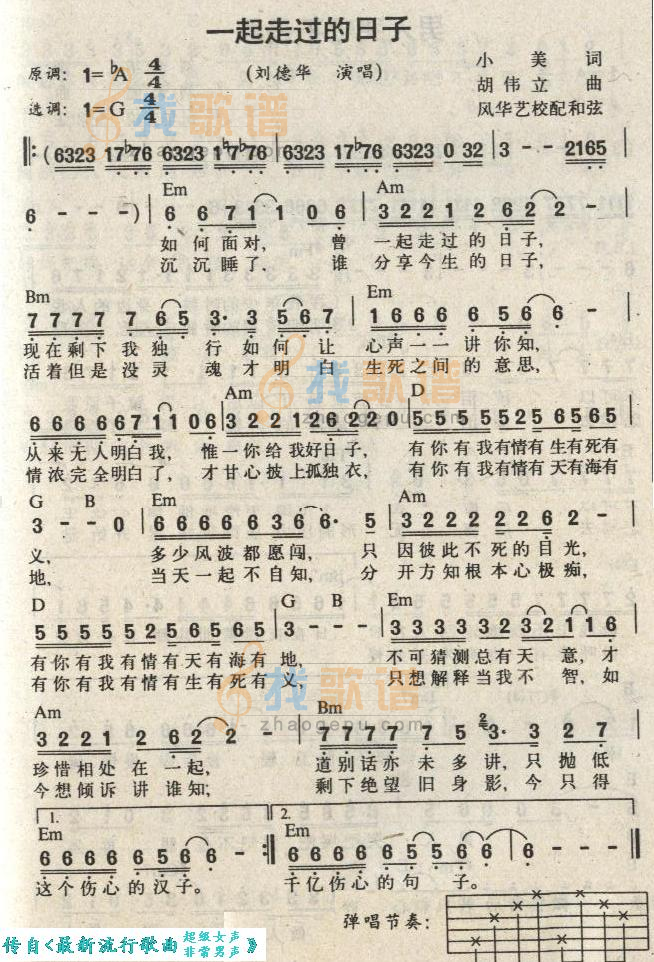 一起走过的日子
原调：1=♭A 4/4 (刘德华 演唱) 小美词
胡伟立曲
选调：1=G 4/4 风华艺校配和弦
找歌谱
(6323 17♭76 6323 1♭7♭76 6323 17♭76 6323 0 32 3 - - 2165
Em Am
6 - - -) 6 6 7 1 1 0 6 3 2 2 1 2 6 2 2 -
如何面对， 曾 一起走过的日子，
沉沉睡了， 谁 分享今生的日子，
Bm Em
7 7 7 7 7 6 5 3· 3 5 6 7 1 6 6 6 6 5 6 6 -
现在剩下我独 行如何让 心声一一讲你知，
活着但是没灵 魂才明白 生死之间的意思，
找歌谱
zhaogepu.com
Am D
6 6 6 6 6 7 1 1 0 6 3 2 2 1 2 6 2 2 0 5 5 5 5 5 2 5 6 5 6 5
从来无人明白我， 惟一你给我好日子， 有你有我有情有生有死有
情浓完全明白了， 才甘心披上孤独衣， 有你有我有情有天有海有
G B Em Am
3 - - 0 6 6 6 6 6 3 6 6· 5 3 2 2 2 2 2 6 2 -
义， 多少风波都愿闯， 只 因彼此不死的目光，
地， 当天一起不自知， 分 开方知根本心极痴，
D G B Em
5 5 5 5 5 2 5 6 5 6 5 3 - - - 3 3 3 3 3 2 3 2 1 1 6
有你有我有情有天有海有 地， 不可猜测总有天 意，才
有你有我有情有生有死有 义， 只想解释当我不 智，如
找歌谱
zhaogepu.com
Am Bm
3 2 2 1 2 6 2 2 - 7 7 7 7 7 7 5 2 3· 3 2 7
珍惜相处在一起， 道别话亦未多讲，只抛低
今想倾诉讲谁知； 剩下绝望旧身影，今只得
1. 2.
Em Em
6 6 6 6 6 5 6 6 - 6 6 6 6 6 5 5 6 6 - - -
这个伤心的汉子。 千亿伤心的句 子。
弹唱节奏：
传自<最新流行歌曲 超级女声 非常男声 》